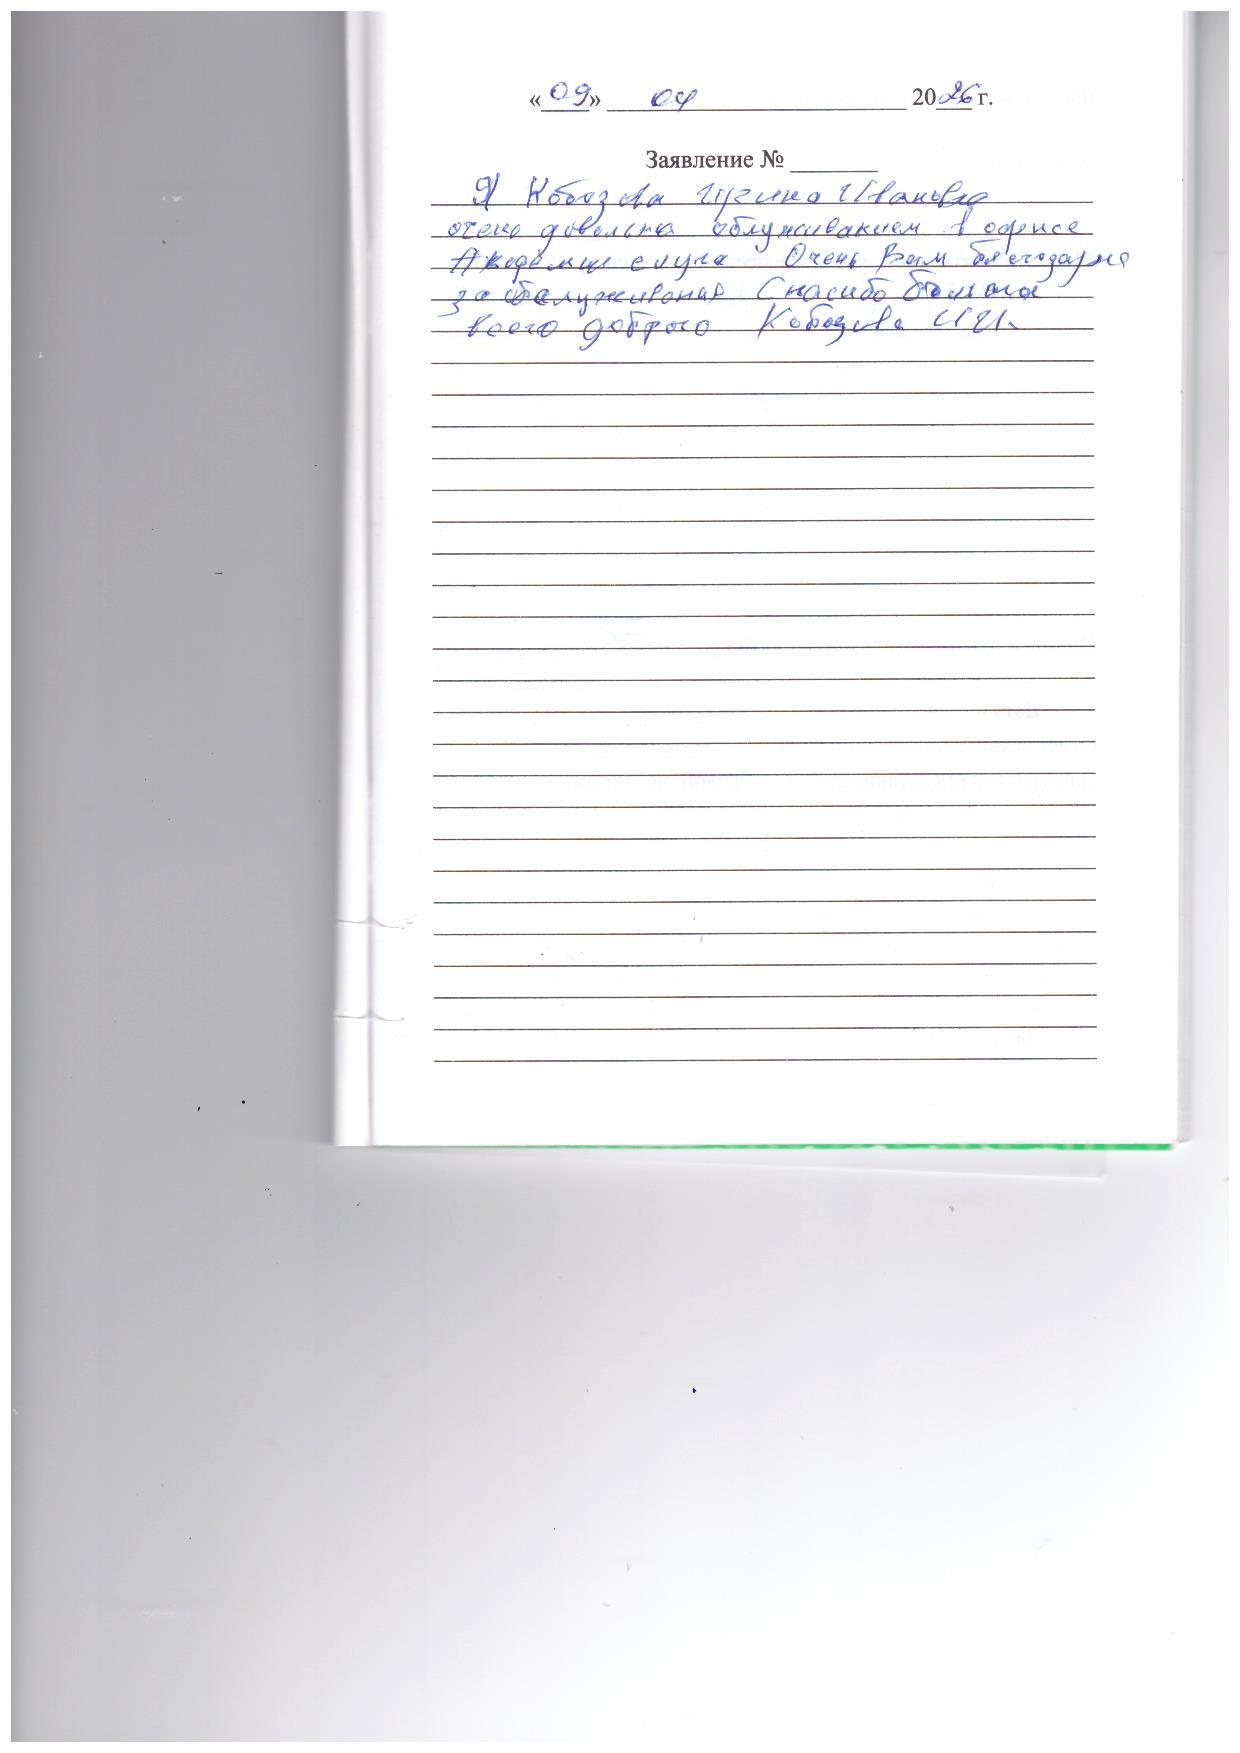 «09» 04 2026 г.
Заявление №
Я Кобозева Ирина Ивановна
очень довольна обслуживанием в офисе
Академии слуха Очень Вам благодарна
за обслуживания Спасибо большое
всего доброго Кобозева И.И.